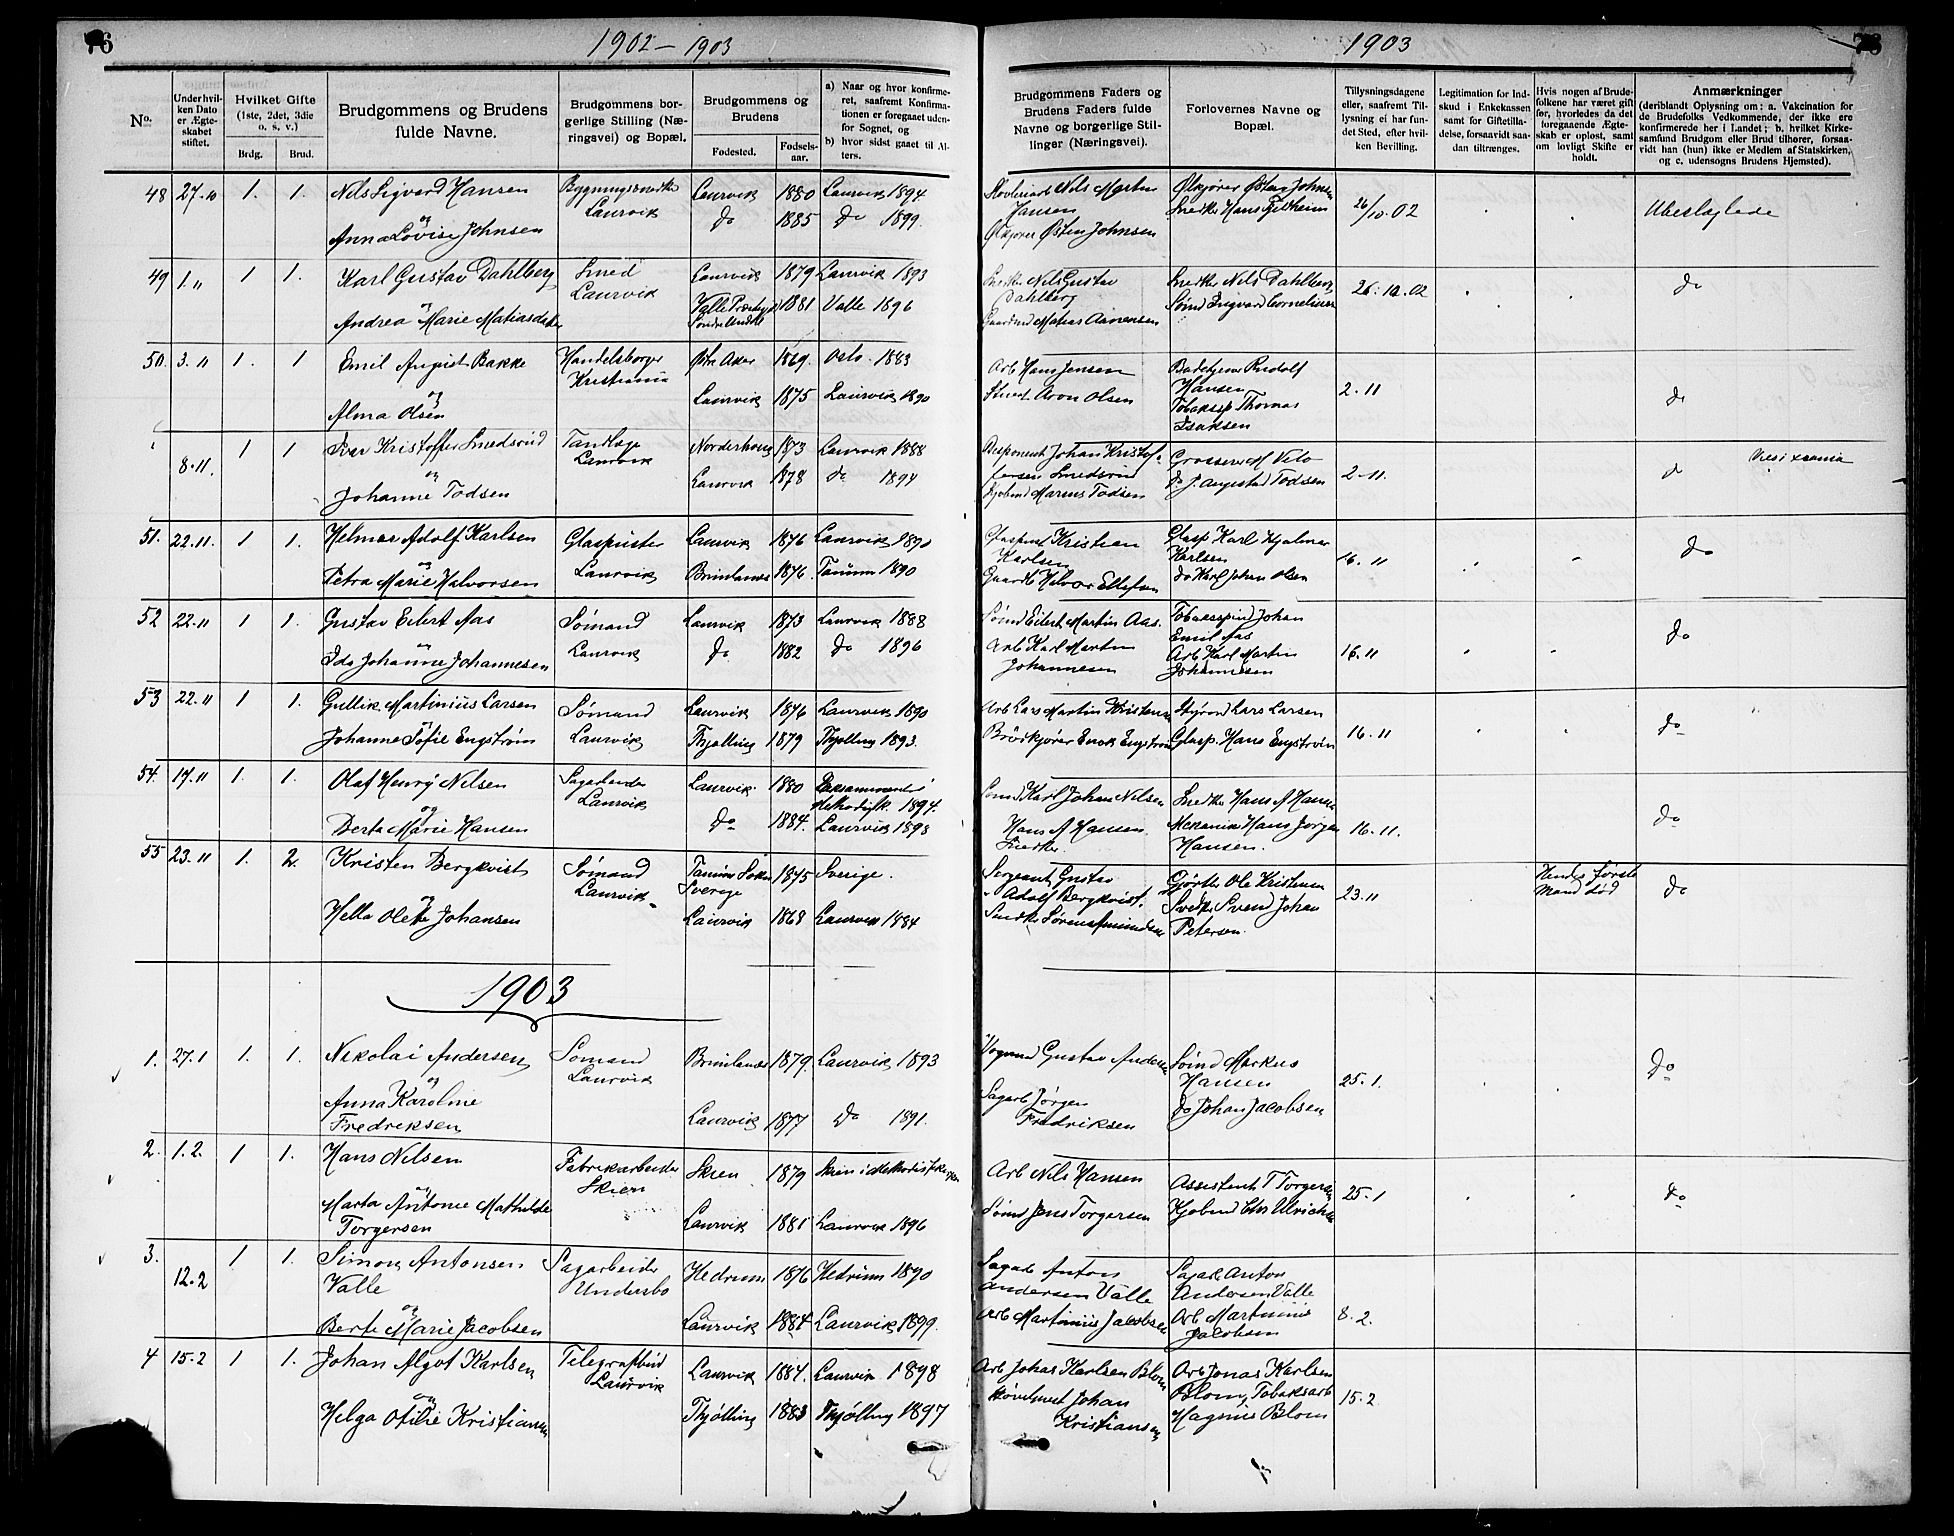 76
1902 - 1903
No.
Under hvilken Dato er Ægteskabet stiftet.
Hvilket Gifte (1ste, 2det, 3die o. s. v.)
Brdg.
Brud.
Brudgommens og Brudens fulde Navne.
Brudgommens borgerlige Stilling (Næringsvei) og Bopæl.
Brudgommens og Brudens
Fødested.
Fødselsaar.
a) Naar og hvor konfirmeret, saafremt Konfirmationen er foregaaet udenfor Sognet, og
b) hvor sidst gaaet til Alters.
48 27-10 1. 1. Nils Sigvard Hansen Bygningssnedker Laurvik 1880 Laurvik 1894
og Laurvik
Anna Lovise Johnsen do 1885 do 1899.
49 1. 11 1 1. Karl Gustav Dahlberg Smed Laurvik 1879 Laurvik 1893
og Laurvik
Andrea Marie Matiasdatter 1881 Valle 1896
50. 3. 11 1. 1 Emil August Bakke Handelsborger Østre Aker 1869. Oslo. 1883
og Kristiania
Alma Olsen Laurvik 1875 Laurvik 1890
8-11. 1 1 Iver Kristoffer Smedsrud Tandlæge Norderhoug 1873 Laurvik 1888
og Laurvik
Johanne Todsen Laurvik 1878 do 1894
51. 22.11. 1 1. Helmer Adolf Karlsen Glaspuster Laurvik 1876 Laurvik 1890
og Laurvik
Petra Marie Halvorsen Brunlanes 1876. Tanum 1890
52 22.11 1 1. Gustav Eilert Aas Sømand Laurvik 1873 Laurvik 1888
og Laurvik
Ida Johanne Johannesen do 1882 do 1896
53 22.11 1 1. Gullik Martinius Larsen Sømand Laurvik 1876 Laurvik 1890
og Laurvik
Johanne Sofie Engstrøm Thjølling 1879 Thjølling 1893.
54. 19.11 1. 1. Olaf Henry Nilsen Sagarbeider Laurvik. 1880 1894.
og Laurvik
Berta Marie Hansen do 1884. Laurvik 1898
55 23.11 1. 2. Kristen Bergkvist Sømand Tanum Sokn 1875 Sverige.
og Laurvik. Sverige
Hella Olette Johansen Laurvik 1868 Laurvik 1884
1903
1. 27.1 1. 1. Nikolai Andersen Sømand Brunlanes 1879. Laurvik 1893
og Laurvik
Anna Karoline
Fredriksen Laurvik 1877 do 1891.
2. 1.2. 1 1. Hans Nilsen Fabrikarbeider Skien 1879 Skien i Methodistkirken
og Skien
Marta Antonie Mathilde
Torgersen Laurvik 1881 Laurvik 1896
3. 12.2 1 1. Simon Antonsen Sagarbeider Hedrum 1876 Hedrum 1890
Valle Undersbo
og
Berte Marie Jacobsen Laurvik 1884 Laurvik 1899.
4 15.2 1 1. Johan Algot Karlsen Telegrafbud Laurvik 1884. Laurvik 1898
og Laurvik
Helga Otilie Kristiansen Thjølling 1883 Thjølling 1897
1903
Brudgommens Faders og Brudens Faders fulde Navne og borgerlige Stillinger (Næringsvei).
Forlovernes Navne og Bopæl.
Tillysningsdagene eller, saafremt Tillysning ei har fundet Sted, efter hvilken Bevilling.
Legitimation for Indskud i Enkekassen samt for Giftetilladelse, forsaavidt saadan tiltrænges.
Hvis nogen af Brudefolkene har været gift før, hvorledes da det foregaaende Ægteskab er opløst, samt om lovligt Skifte er holdt.
Anmærkninger
(deriblandt Oplysning om: a. Vakcination for de Brudefolks Vedkommende, der ikke ere konfirmerede her i Landet; b. hvilket Kirkesamfund Brudgom eller Brud tilhører, forsaavidt han (hun) ikke er Medlem af Statskirken, og c. udensogns Brudens Hjemsted).
Nils Martin Ølkjører Østen Johnsen 26/10.02 Ubeslægtede
Hansen Snedker Hans Fjeldheim
Ølkjører Østen Johnsen
Snedker Nils Gustav Snedker Nils Dahlberg 26.10.02 do
Dahlberg Sømd Ingvard Corneliussen
Gaardmd Matias Aanensen
Arb Hans Jensen Rudolf
Olsen Hansen 2-11 do
Thomas
Isaksen
Disponent Johan Kristof- Grosserer M Velo 2-11. do Viet i Xania
fersen Smedsrud Do J. Augustad Todsen
Kjøbmd Marius Todsen
Glaspust Kristian Glasp Karl Hjalmar do
Karlsen Karlsen 16.11
Gaardb Halvor Ellefsen do Karl Johan Olsen
Sømd Eilert Martin Aas. Tobaksspind Johan do
Arb Karl Martin Emil Aas 16.11
Johannesen Arb Karl Martin
Johannesen
Arb Lars Martin Kristensen Styrmd Lars Larsen 16.11 do
Engstrøm Glasp. Hans Engstrøm
Sømd Karl Johan Nilsen Snedker Hans A Hansen do
Hans A Hansen. Mekaniker Hans Jørgen 16.11.
Snedker. Hansen.
Sergeant Gustav Gjørtler Ole Kristensen 23.11 Hendes første do
Adolf Bergkvist. Snedk Sven Johan Mand død
Snedker Søren Amundsen Petersen.
Vognmd Gustav Andersen Sømd Markus do
Hansen 25.1.
Sagarb Jørgen do Johan Jacobsen
Fredriksen
Arb Nils Hansen Assistent T Torgersen 25.1 do
Sømd Jens Torgersen Kjøbmd Chr Ulrichsen
Sagarb Anton Sagarb Anton
Andersen Valle Andersen Valle 8.2.
Arb Martinius Jacobsen Arb Martinius
Jacobsen
Arb Johas Karlsen Blom Arb Jonas Karlsen
Johan Blom, Tobaksarb 15.2
Kristiansen Magnus Blom